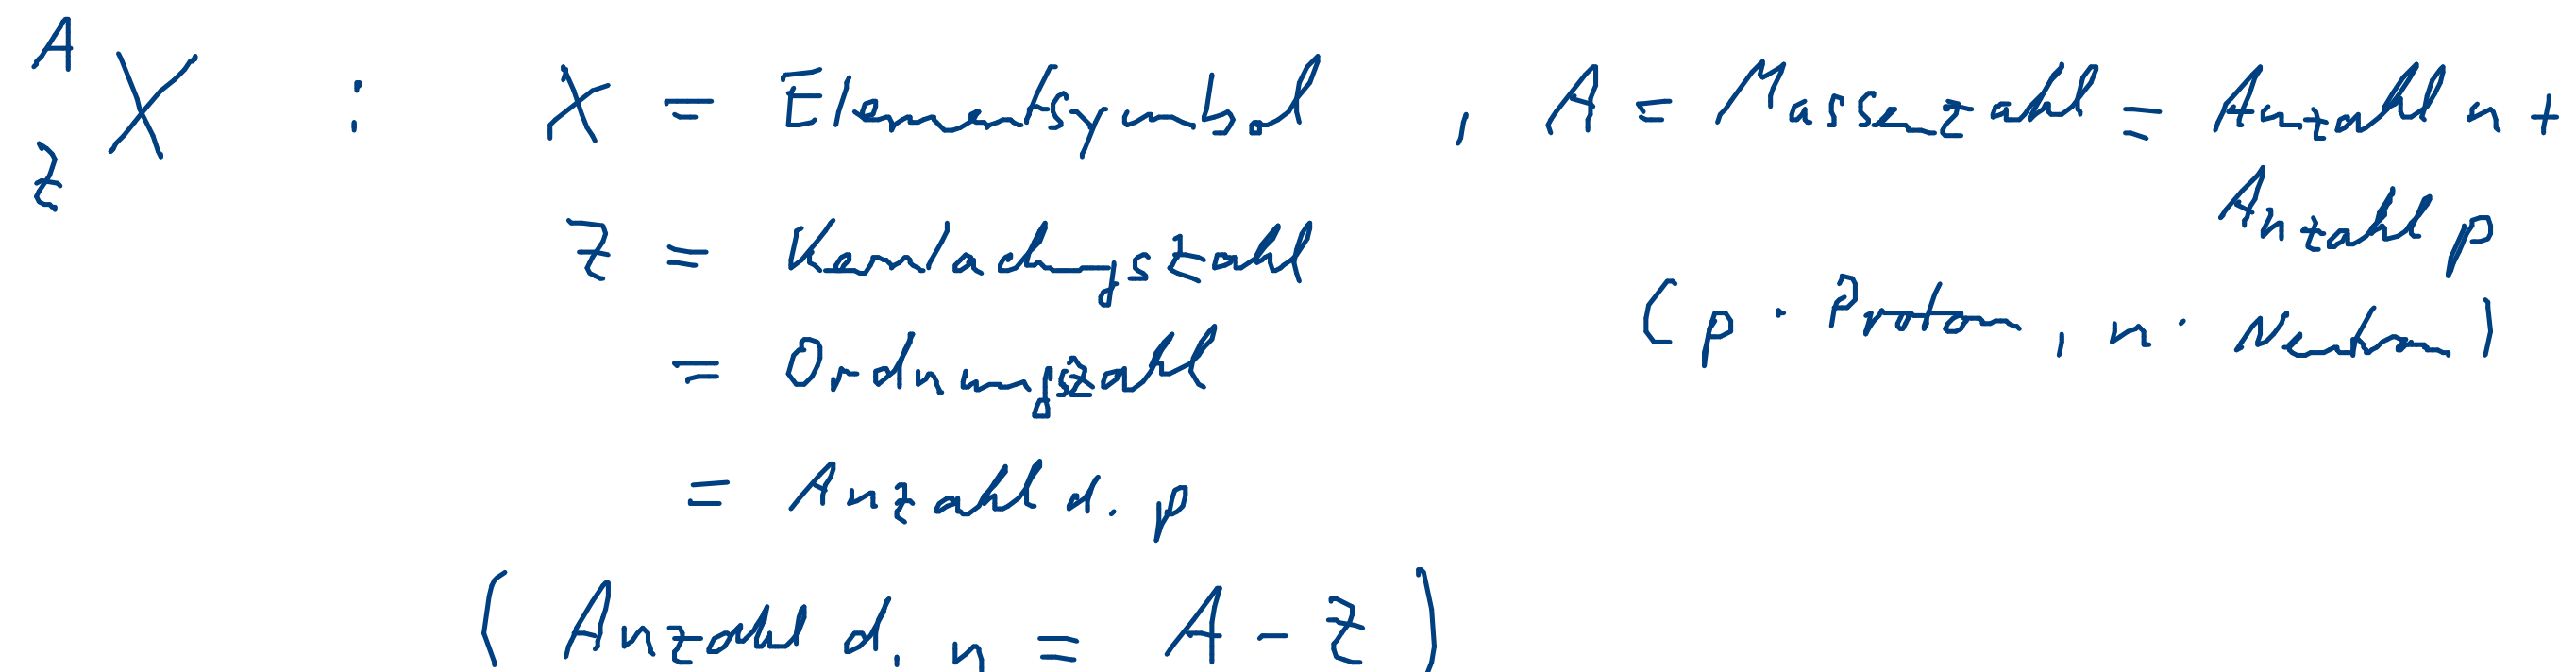 A
Z X : X = Elementsymbol , A = Massenzahl = Anzahl n +
Anzahl p
Z = Kernladungszahl
(p : Proton, n : Neutron)
= Ordnungszahl
= Anzahl d. p
( Anzahl d. n = A - Z )